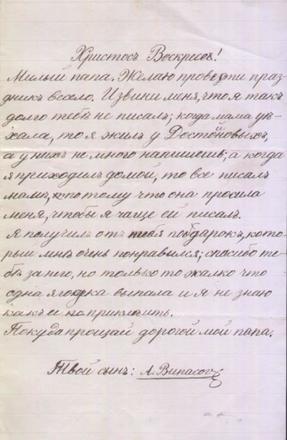 Христосъ Воскресъ!
Милый папа. Желаю провести праз
дникъ весело. Извини меня, что я такъ
долго тебѣ не писалъ; когда мама уѣ-
хала, то я жилъ у
а у нихъ не много напишешь; а когда
я приходилъ домой, то все писалъ
мамѣ, потому что она просила
меня, чтобы я чаще ей писалъ.
Я получилъ отъ тебя подарокъ, кото-
рый мнѣ очень понравился; спасибо те-
бѣ за него, но только то жалко что
одна ягодка выпала и я не знаю
какъ ее
Покуда прощай дорогой мой папа.
Твой сынъ: А.